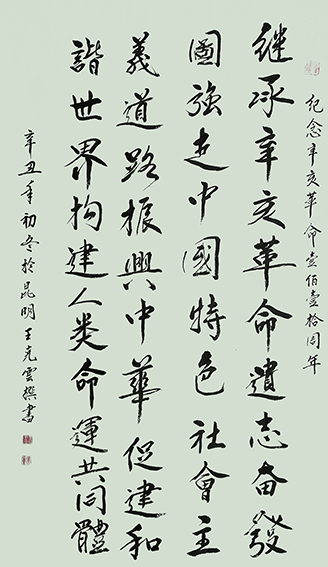 紀念辛亥革命壹佰壹拾周年
继承辛亥革命遺志奋發
圖強走中國特色社會主
義道路振興中華促建和
諧世界构建人类命運共同體
辛丑年初冬於昆明王克雲撰書